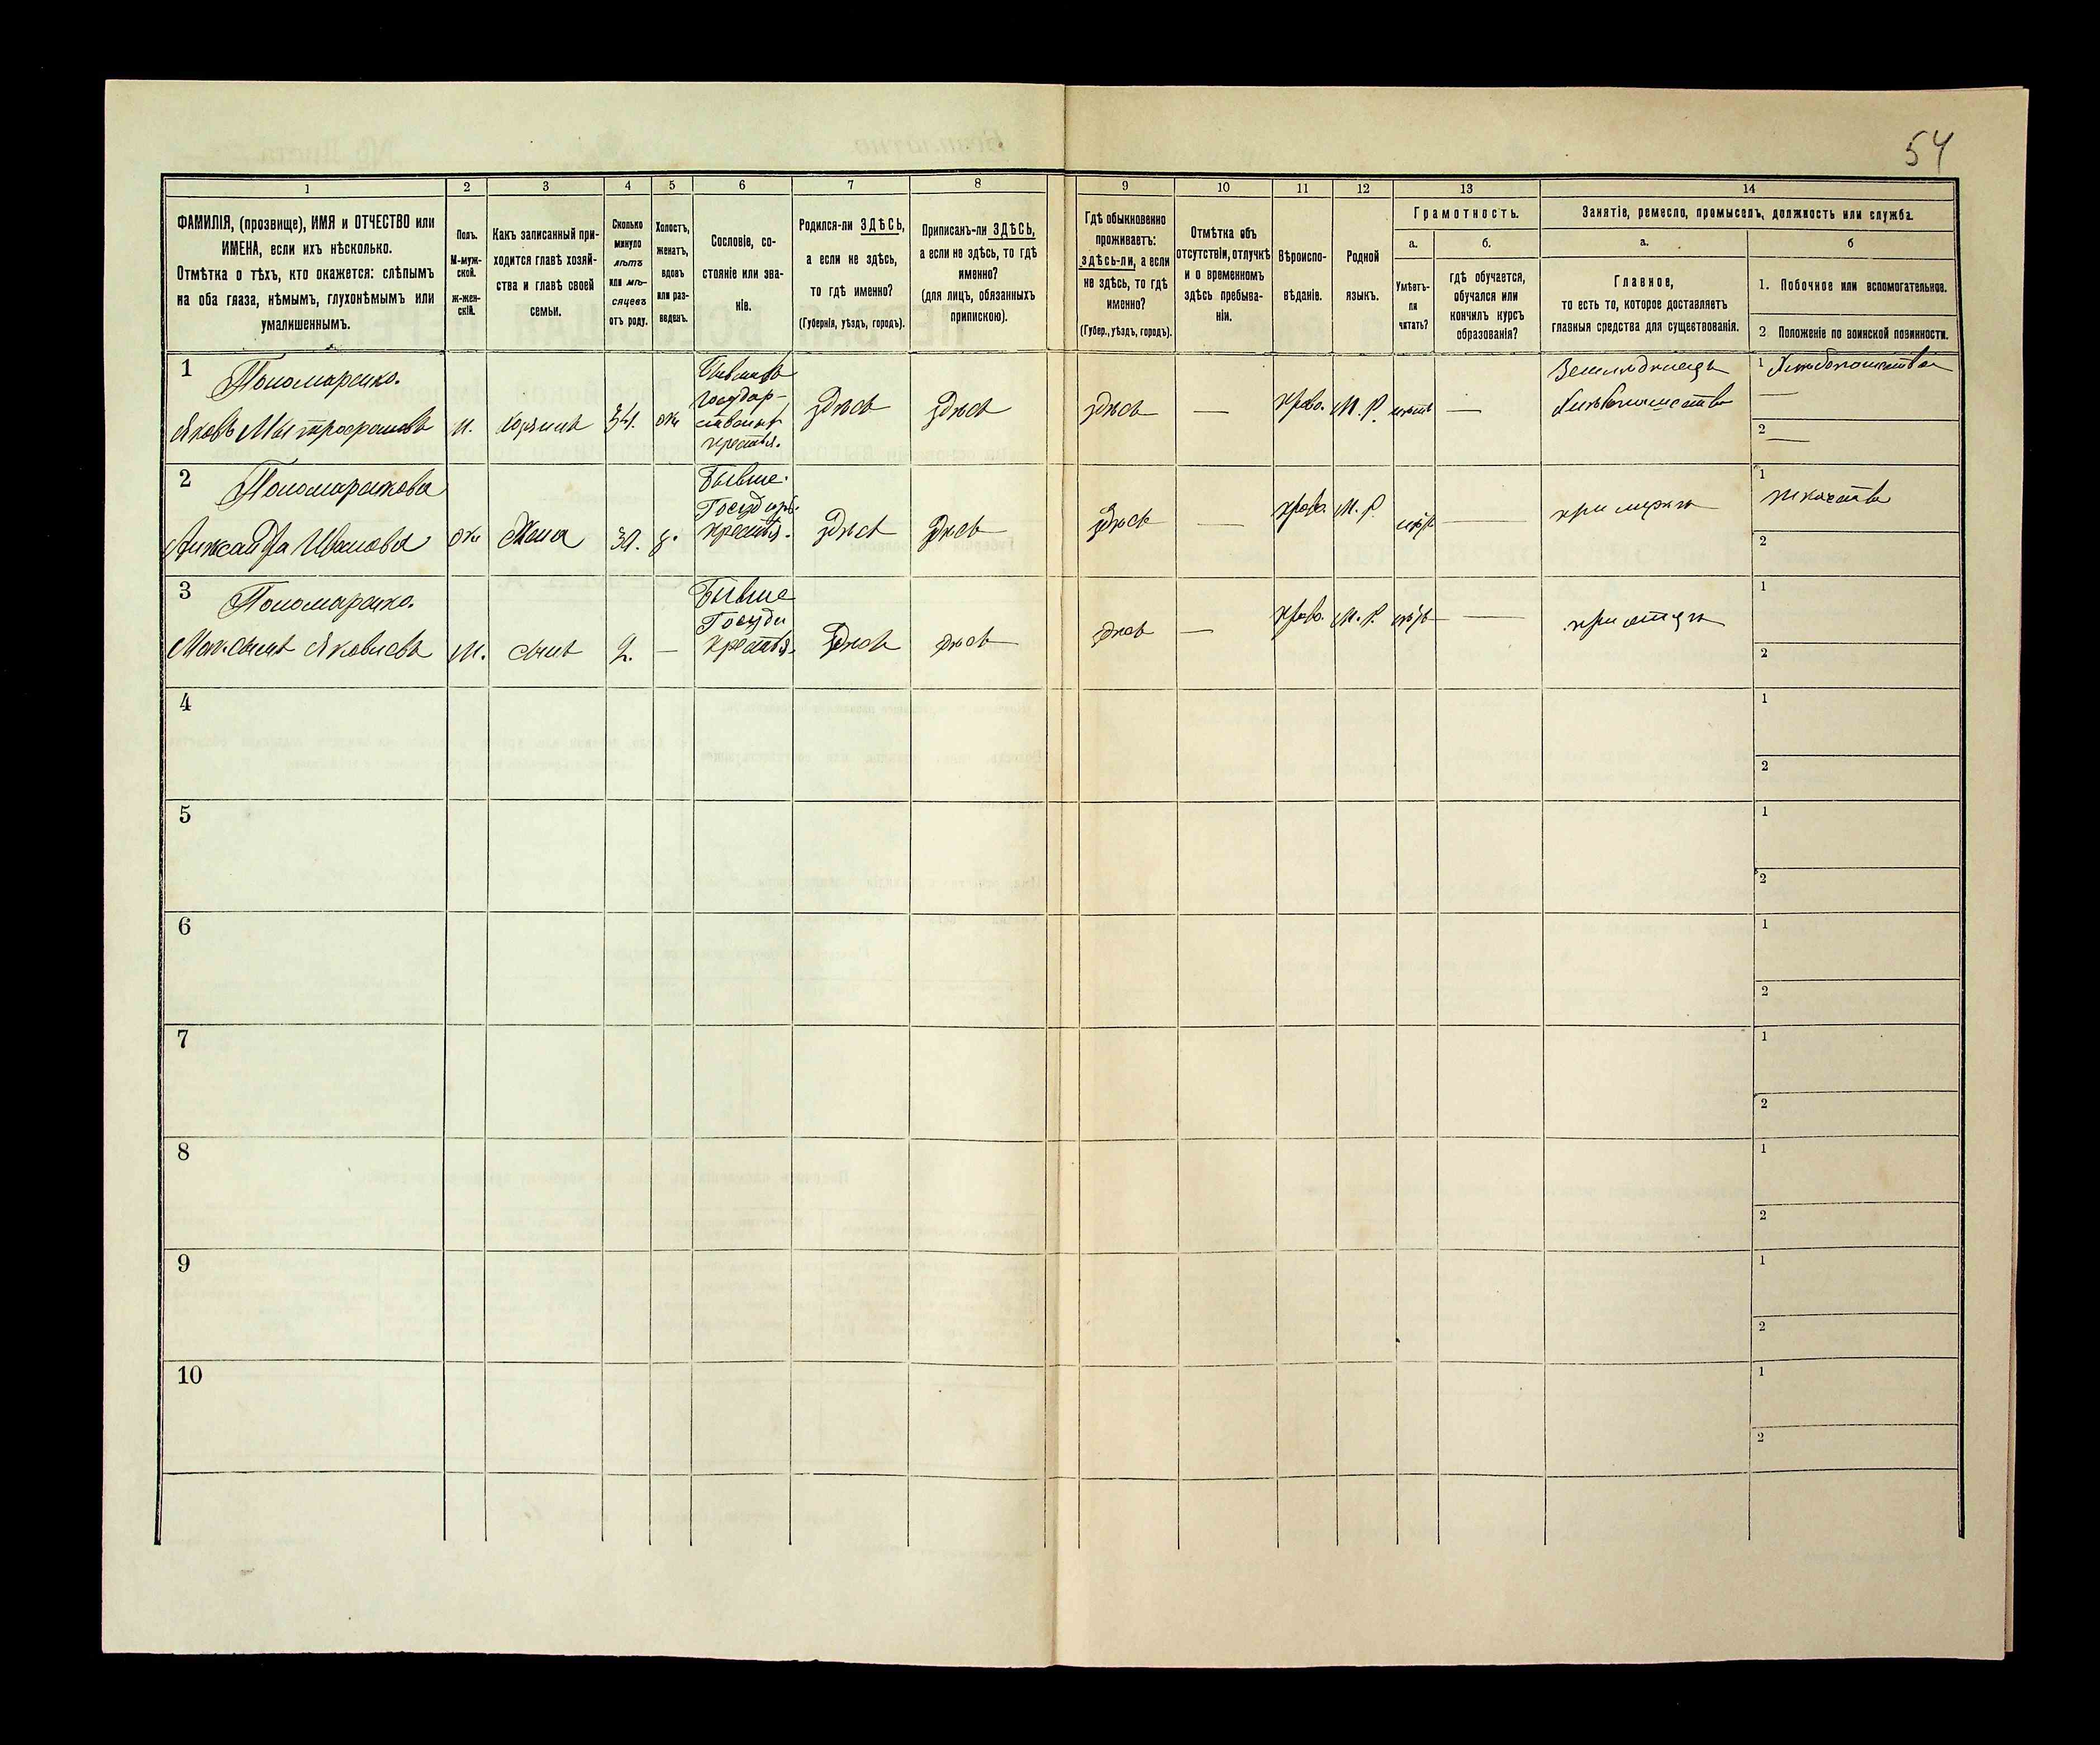 54
1 2 3 4 5 6 7 8 9 10 11 12 13 14
ФАМИЛІЯ, (прозвище), ИМЯ и ОТЧЕСТВО или
ИМЕНА, если ихъ нѣсколько.
Отмѣтка о тѣхъ, кто окажется: слѣпымъ
на оба глаза, нѣмымъ, глухонѣмымъ или
умалишеннымъ.
Полъ.
М-муж-
ской.
ж-жен-
скій.
Какъ записанный при-
ходится главѣ хозяй-
ства и главѣ своей
семьи.
Сколько
минуло
лѣтъ
или мѣ-
сяцевъ
отъ роду.
Холостъ,
женатъ,
вдовъ
или раз-
веденъ.
Сословіе, со-
стояніе или зва-
ніе.
Родился-ли ЗДѢСЬ,
а если не здѣсь,
то гдѣ именно?
(Губернія, уѣздъ, городъ).
Приписанъ-ли ЗДѢСЬ,
а если не здѣсь, то гдѣ
именно?
(для лицъ, обязанныхъ
припискою).
Гдѣ обыкновенно
проживаетъ:
здѣсь-ли, а если
не здѣсь, то гдѣ
именно?
(Губер., уѣздъ, городъ).
Отмѣтка объ
отсутствіи, отлучкѣ
и о временномъ
здѣсь пребыва-
ніи.
Вѣроиспо-
вѣданіе.
Родной
языкъ.
Грамотность.
а.
Умѣетъ-
ли
читать?
б.
гдѣ обучается,
обучался или
кончилъ курсъ
образованія?
Занятіе, ремесло, промыселъ, должность или служба.
а.
Главное,
то есть то, которое доставляетъ
главныя средства для существованія.
б
1. Побочное или вспомогательное.
2 Положеніе по воинской повинности.
1
Пономаренко.
Яковъ Митрофановъ
М.
хозяинъ
34.
ж
Бывшій
государ-
ственн
крестья.
здѣсь
здѣсь
здѣсь
—
право.
М. Р.
—
Земледѣлецъ
Хлѣбопашество
1 Хлѣбопашество
—
2 —
2
Пономаренкова
Александра Иванова
ж
Жена
31.
Бывше.
Государ.
крестья.
здѣсь
здѣсь
здѣсь
—
право.
М. Р.
—
при мужѣ
1
2
3
Пономаренко.
Максимъ Яковлевъ
М.
сынъ
2.
—
Бывше
Госуда
крестья.
здѣсь
здѣсь
здѣсь
—
право.
М. Р.
—
при отцѣ
1
2
4
1
2
5
1
2
6
1
2
7
1
2
8
1
2
9
1
2
10
1
2